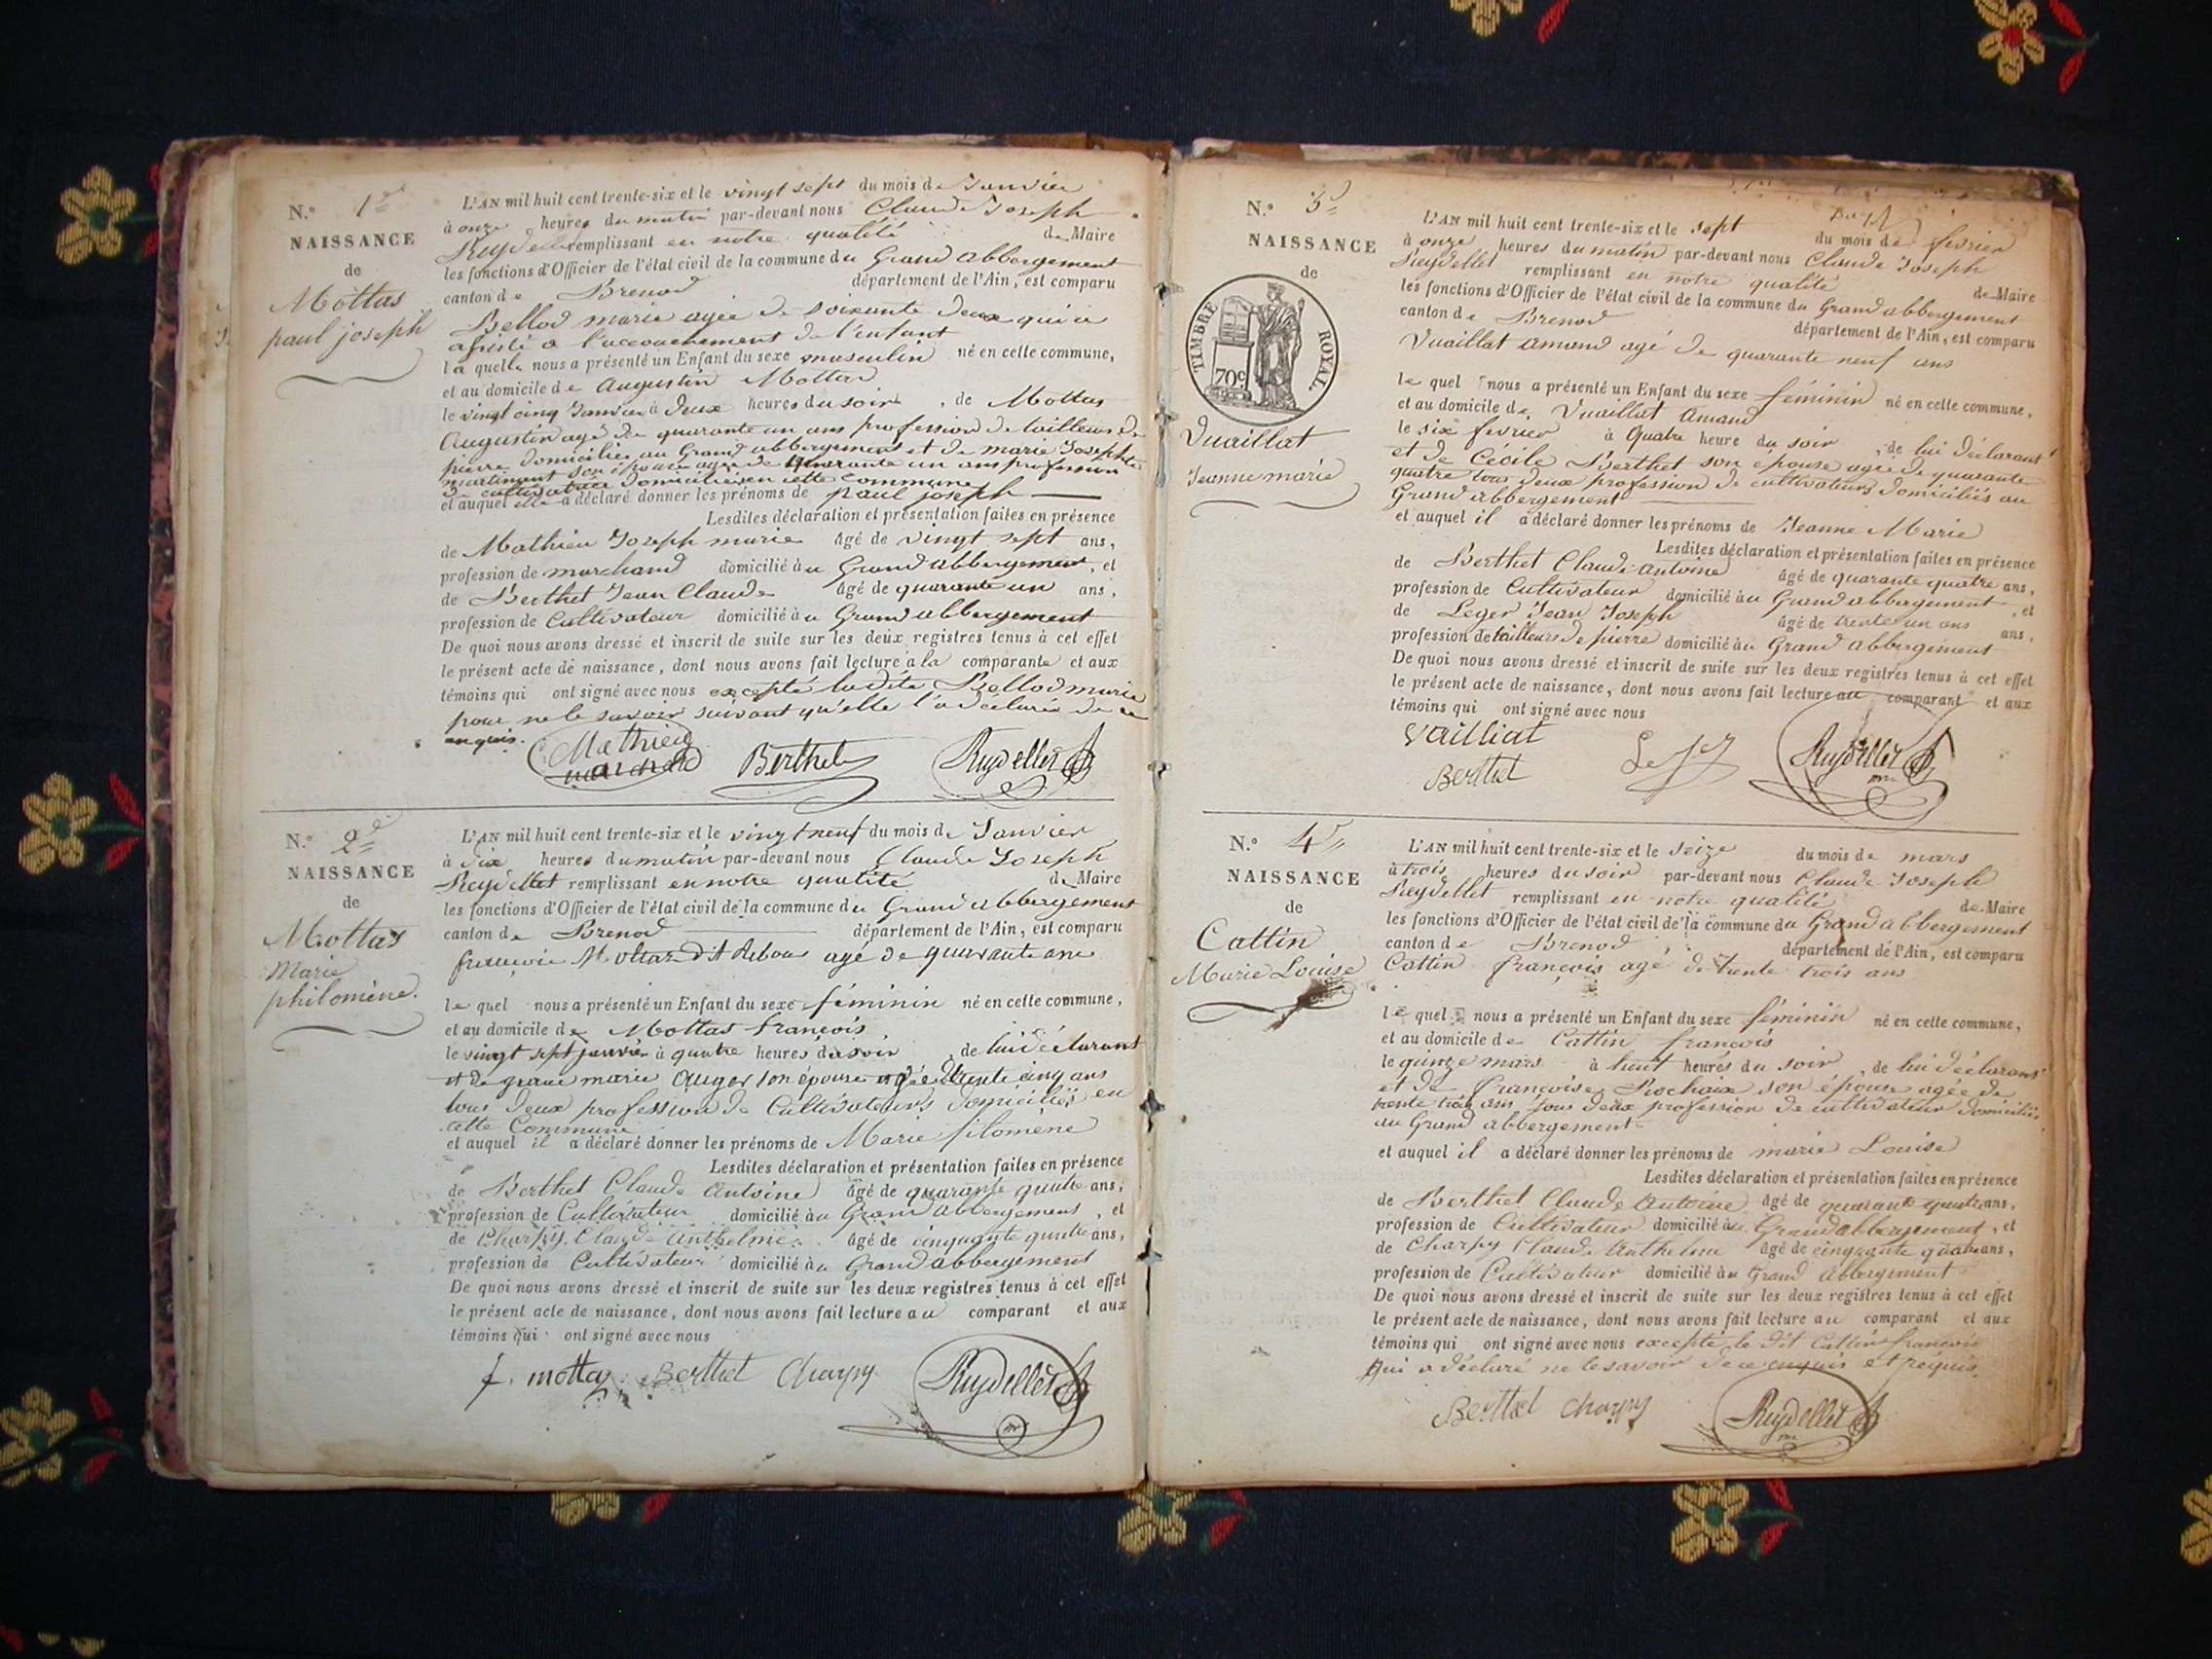 N.° 1er
NAISSANCE
de
Mottas
paul joseph
L'AN mil huit cent trente-six et le vingt sept du mois de Janvier
à onze heures du matin par-devant nous Claude Joseph
Reydellet remplissant en notre qualité de Maire
les fonctions d'Officier de l'état civil de la commune du Grand abbergement
canton de Brenod département de l'Ain, est comparu
Bellod marie agée de soixante deux qui a
assisté a l'accouchement de l'enfant
la quelle nous a présenté un Enfant du sexe masculin né en cette commune,
et au domicile de Augustin Mottas
le vingt cinq Janvier à deux heures du soir, de Mottas
Augustin agé de quarante un ans profession de tailleurs de
pierre domiciliée au Grand abbergement et de marie Josephte
martinant son épouse agée de quarante un ans profession
de cultivatrice domiciliée en cette commune
et auquel elle a déclaré donner les prénoms de paul joseph
Lesdites déclaration et présentation faites en présence
de Mathieu Joseph marie âgé de vingt sept ans,
profession de marchand domicilié au Grand abbergement, et
de Berthet Jean Claude âgé de quarante un ans,
profession de Cultivateur domicilié au Grand abbergement
De quoi nous avons dressé et inscrit de suite sur les deux registres tenus à cet effet
le présent acte de naissance, dont nous avons fait lecture a la comparante et aux
témoins qui ont signé avec nous excepté ladite Bellod marie
pour ne le savoir suivant qu'elle l'a déclaré de ce
enquis.
Mathieu
marchand Berthet Reydellet
N.° 2e
NAISSANCE
de
Mottas
Marie
philomène.
L'AN mil huit cent trente-six et le vingt neuf du mois de Janvier
à dix heures du matin par-devant nous Claude Joseph
Reydellet remplissant en notre qualité de Maire
les fonctions d'Officier de l'état civil de la commune du Grand abbergement
canton de Brenod département de l'Ain, est comparu
francois Mottas dit agé de quarante ans
le quel nous a présenté un Enfant du sexe féminin né en cette commune,
et au domicile de Mottas francois
le vingt sept janvier à quatre heures du soir, de lui déclarant
et de marie Auger son épouse agée de trente cinq ans
tous deux profession de Cultivateurs domiciliés en
cette Commune
et auquel il a déclaré donner les prénoms de Marie filomène
Lesdites déclaration et présentation faites en présence
de Berthet Claude Antoine âgé de quarante quatre ans,
profession de Cultivateur domicilié au Grand abbergement, et
de Charpy Claude Anthelme âgé de cinquante quatre ans,
profession de Cultivateur domicilié au Grand abbergement
De quoi nous avons dressé et inscrit de suite sur les deux registres tenus à cet effet
le présent acte de naissance, dont nous avons fait lecture au comparant et aux
témoins qui ont signé avec nous
f. mottas Berthet Charpy Reydellet
N.° 3e
NAISSANCE
de
TIMBRE ROYAL.
70c
Vuaillat
Jeanne marie
L'AN mil huit cent trente-six et le sept du mois de fevrier
à onze heures du matin par-devant nous Claude Joseph
Reydellet remplissant en notre qualité de Maire
les fonctions d'Officier de l'état civil de la commune du Grand abbergement
canton de Brenod département de l'Ain, est comparu
Vuaillat Amand agé de quarante neuf ans
le quel nous a présenté un Enfant du sexe féminin né en cette commune,
et au domicile de Vuaillat Amand
le six fevrier à Quatre heure du soir, de lui déclarant
et de Cécile Berthet son épouse agée de quarante
quatre tous deux profession de cultivateurs domiciliés au
Grand abbergement
et auquel il a déclaré donner les prénoms de Jeanne Marie
Lesdites déclaration et présentation faites en présence
de Berthet Claude Antoine âgé de quarante quatre ans,
profession de Cultivateur domicilié au Grand abbergement, et
de Leger Jean Joseph âgé de trente un ans ans,
profession de tailleurs de pierre domicilié au Grand abbergement
De quoi nous avons dressé et inscrit de suite sur les deux registres tenus à cet effet
le présent acte de naissance, dont nous avons fait lecture au comparant et aux
témoins qui ont signé avec nous
Vailliat
Berthet Reydellet
N.° 4e
NAISSANCE
de
Cattin
Marie Louise
L'AN mil huit cent trente-six et le seize du mois de mars
à trois heures du soir par-devant nous Claude Joseph
Reydellet remplissant en notre qualité de Maire
les fonctions d'Officier de l'état civil de la commune du Grand abbergement
canton de Brenod département de l'Ain, est comparu
Cattin françois agé de trente trois ans
le quel nous a présenté un Enfant du sexe féminin né en cette commune,
et au domicile de Cattin françois
le quinze mars à huit heures du soir, de lui déclarant
et de françoise Rochaix son épouse agée de
trente trois ans tous deux profession de cultivateur domiciliés
au Grand abbergement
et auquel il a déclaré donner les prénoms de marie Louise
Lesdites déclaration et présentation faites en présence
de Berthet Claude Antoine âgé de quarante quatre ans,
profession de Cultivateur domicilié au Grand abbergement, et
de Charpy Claude Anthelme âgé de cinquante quatre ans,
profession de Cultivateur domicilié au Grand Abbergement
De quoi nous avons dressé et inscrit de suite sur les deux registres tenus à cet effet
le présent acte de naissance, dont nous avons fait lecture au comparant et aux
témoins qui ont signé avec nous excepté le dit Cattin francois
Qui a déclaré ne le savoir de ce enquis et requis.
Berthet Charpy Reydellet